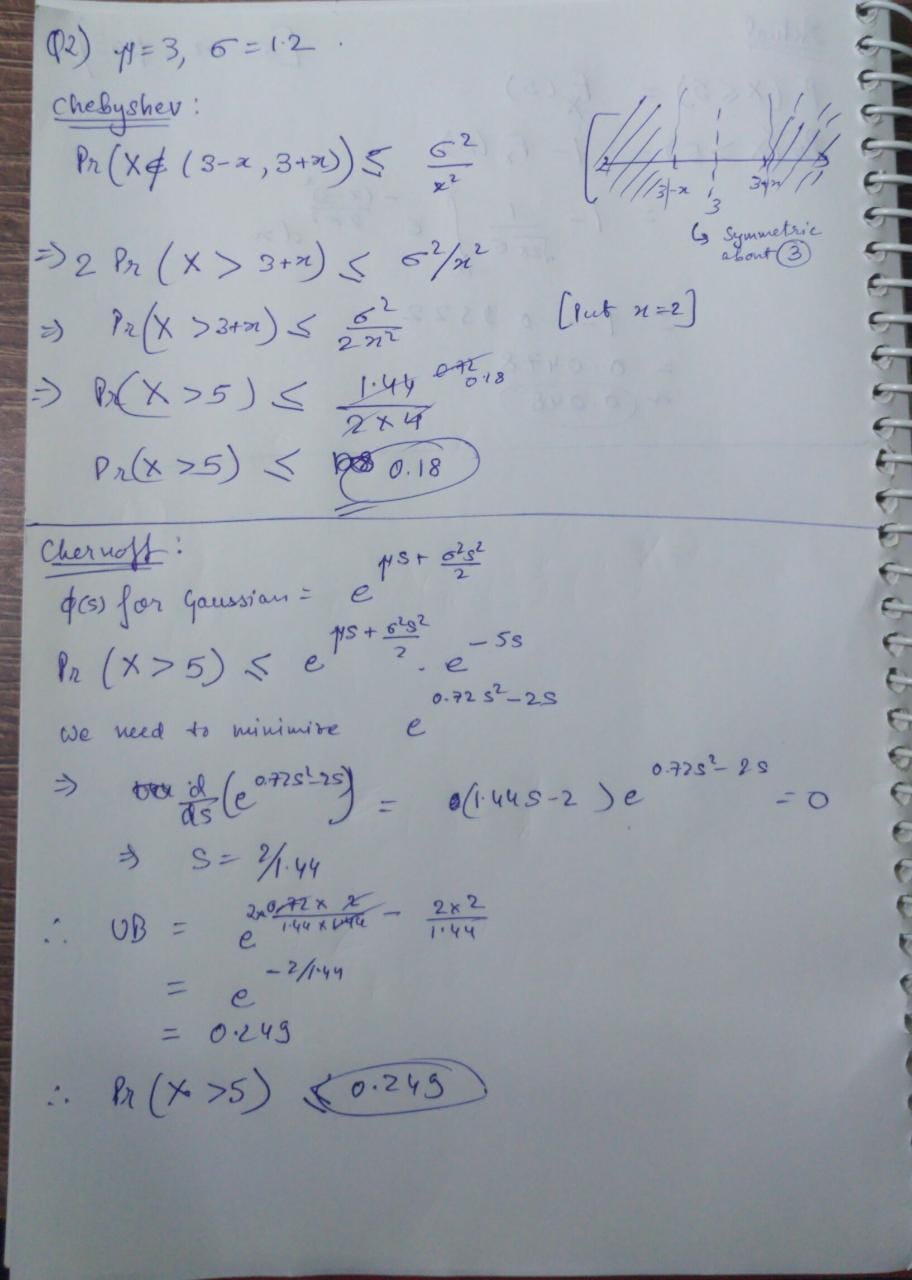 Q2) μ=3, σ=1.2.
Chebyshev:
Pr(X∉(3-x, 3+x)) ≤ σ²/x²
3-x 3 3+x
↳ Symmetric
about ③
⇒ 2 Pr(X > 3+x) ≤ σ²/x²
⇒ Pr(X > 3+x) ≤ σ²/2x² [Put x=2]
⇒ Pr(X > 5) ≤ 1.44/2×4 0.72 0.18
Pr(X > 5) ≤ 0.18
Chernoff:
ϕ(s) for Gaussian = e^(μs + σ²s²/2)
Pr(X > 5) ≤ e^(μs + σ²s²/2) . e^(-5s)
we need to minimize e^(0.72s²-2s)
⇒ d/ds (e^(0.72s²-2s)) = (1.44s-2) e^(0.72s²-2s) = 0
⇒ s = 2/1.44
∴ UB = e^(2×0.72×2/1.44×1.44 - 2×2/1.44)
= e^(-2/1.44)
= 0.249
∴ Pr(X > 5) ≤ 0.249